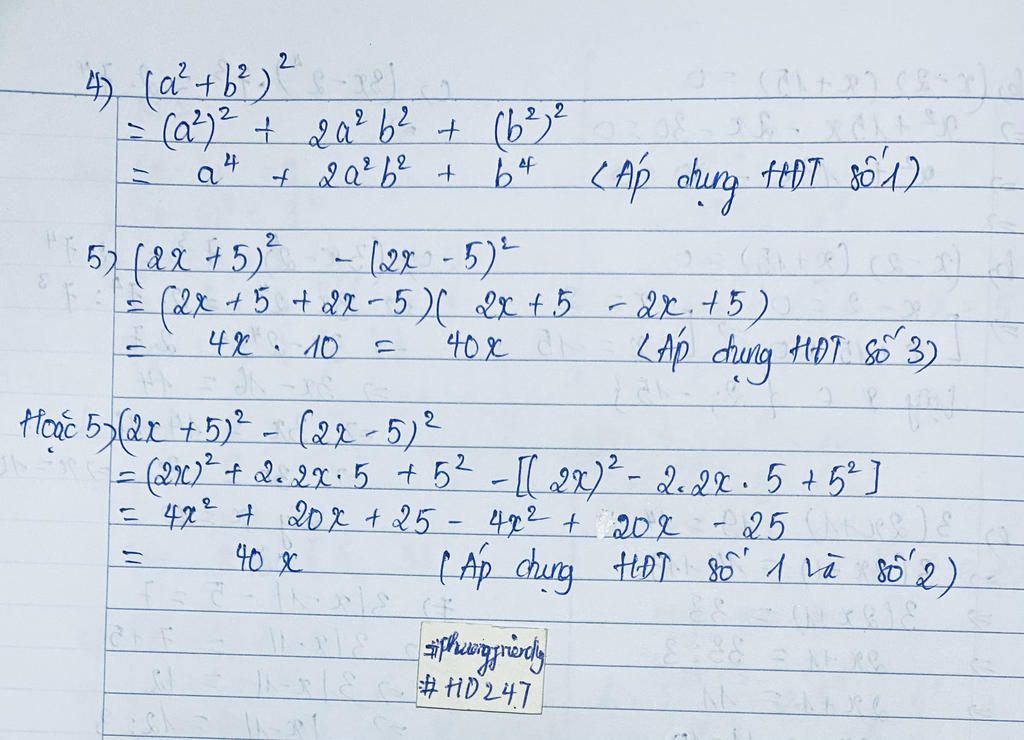 4) (a² + b²)²
= (a²)² + 2a²b² + (b²)²
= a⁴ + 2a²b² + b⁴ (Áp dụng HĐT số 1)
5) (2x + 5)² - (2x - 5)²
= (2x + 5 + 2x - 5)( 2x + 5 - 2x + 5)
= 4x . 10 = 40x (Áp dụng HĐT số 3)
Hoặc 5) (2x + 5)² - (2x - 5)²
= (2x)² + 2.2x.5 + 5² - [(2x)² - 2.2x.5 + 5²]
= 4x² + 20x + 25 - 4x² + 20x - 25
= 40x (Áp dụng HĐT số 1 và số 2)
#phuongfriendly
#HD247